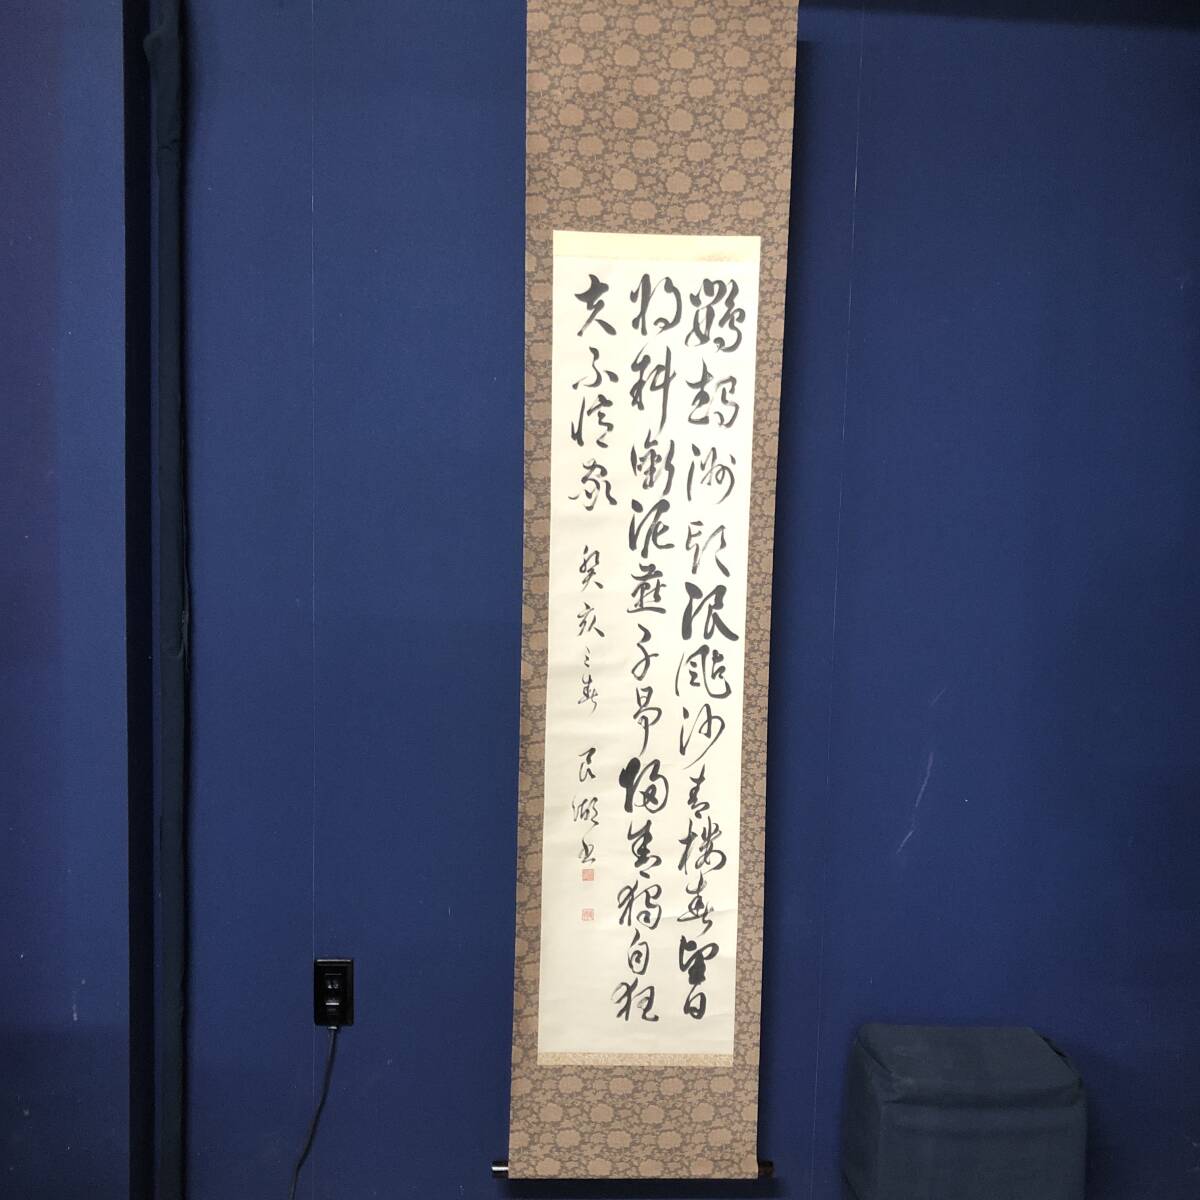 鸚鵡洲頭浪颭沙青樓春望日
將斜銜泥燕子爭歸舍獨自狂
夫不憶家 癸亥三春 艮湖書